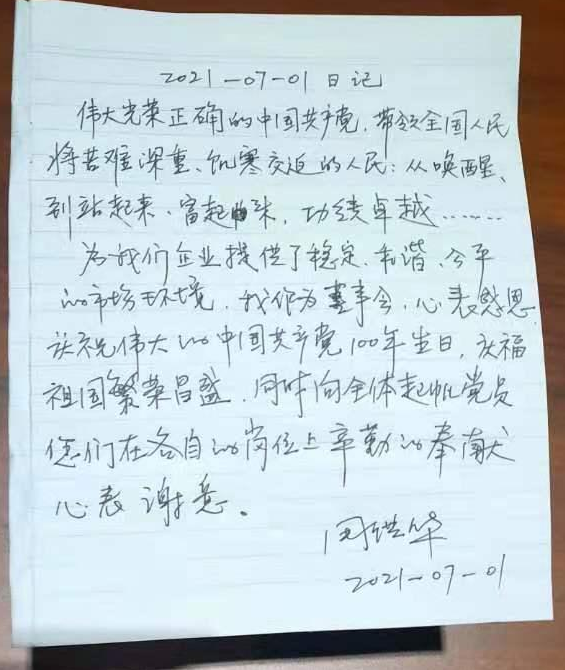 2021-07-01日记
伟大光荣正确的中国共产党,带领全国人民
将苦难深重、饥寒交迫的人民:从唤醒、
到站起来、富起来,功绩卓越……
为我们企业提供了稳定、和谐、公平
的市场环境,我作为董事会,心表感恩
庆祝伟大的中国共产党100年生日,庆福
祖国繁荣昌盛,同时向全体起帆党员
您们在各自的岗位上辛勤的奉献
心表谢意。
周
2021-07-01